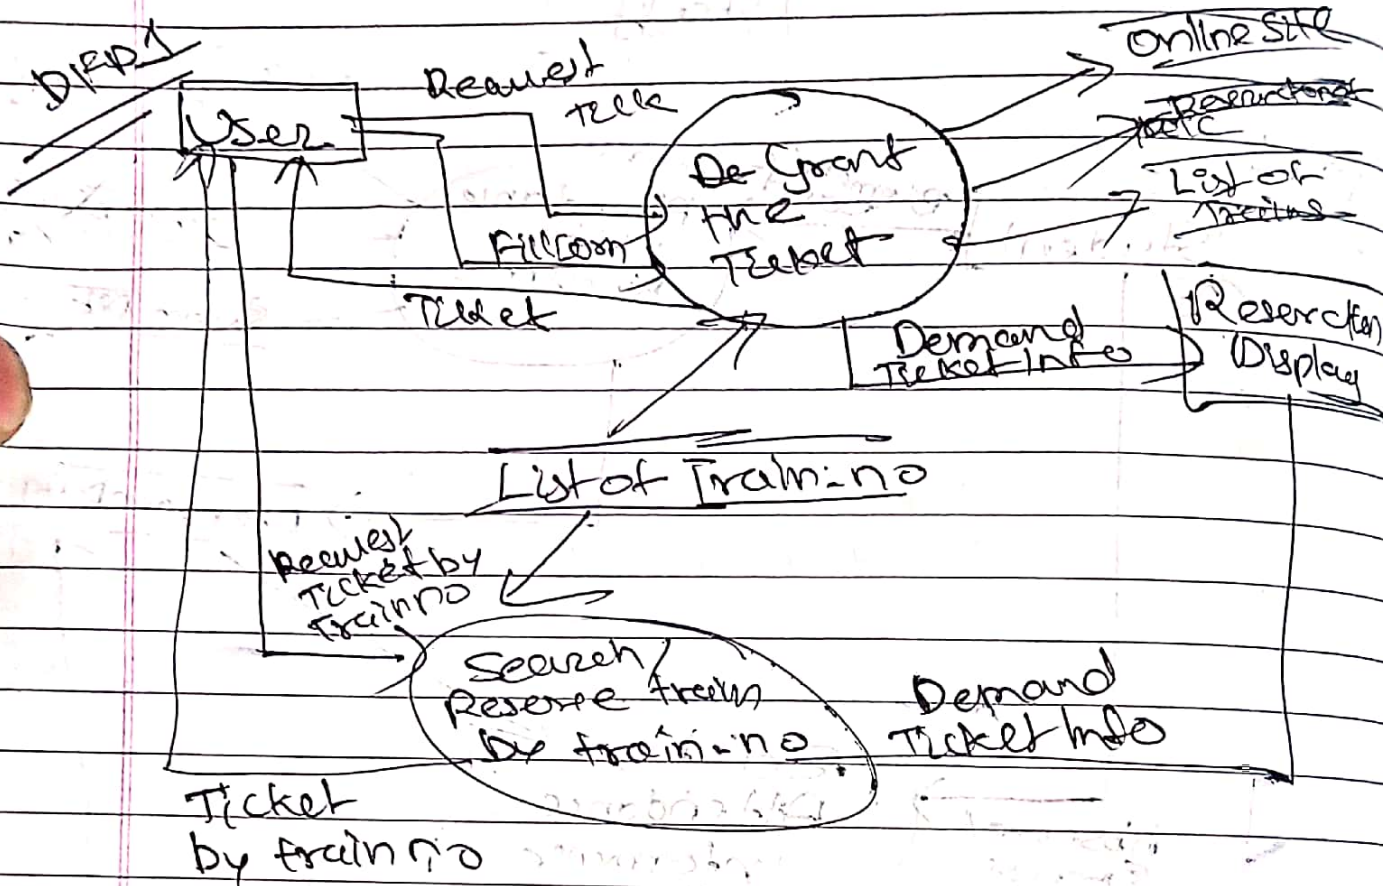 DFD1
User
Request
Ticke
Fillform
Ticket
De Grant
the
Ticket
Online Site
Reservational
List of
Trains
Demand
Ticket Info
Reservation
Display
List of Train-no
Request
Ticket by
Train no
Search/
Reserve train
by train-no
Demand
Ticket Info
Ticket
by train no